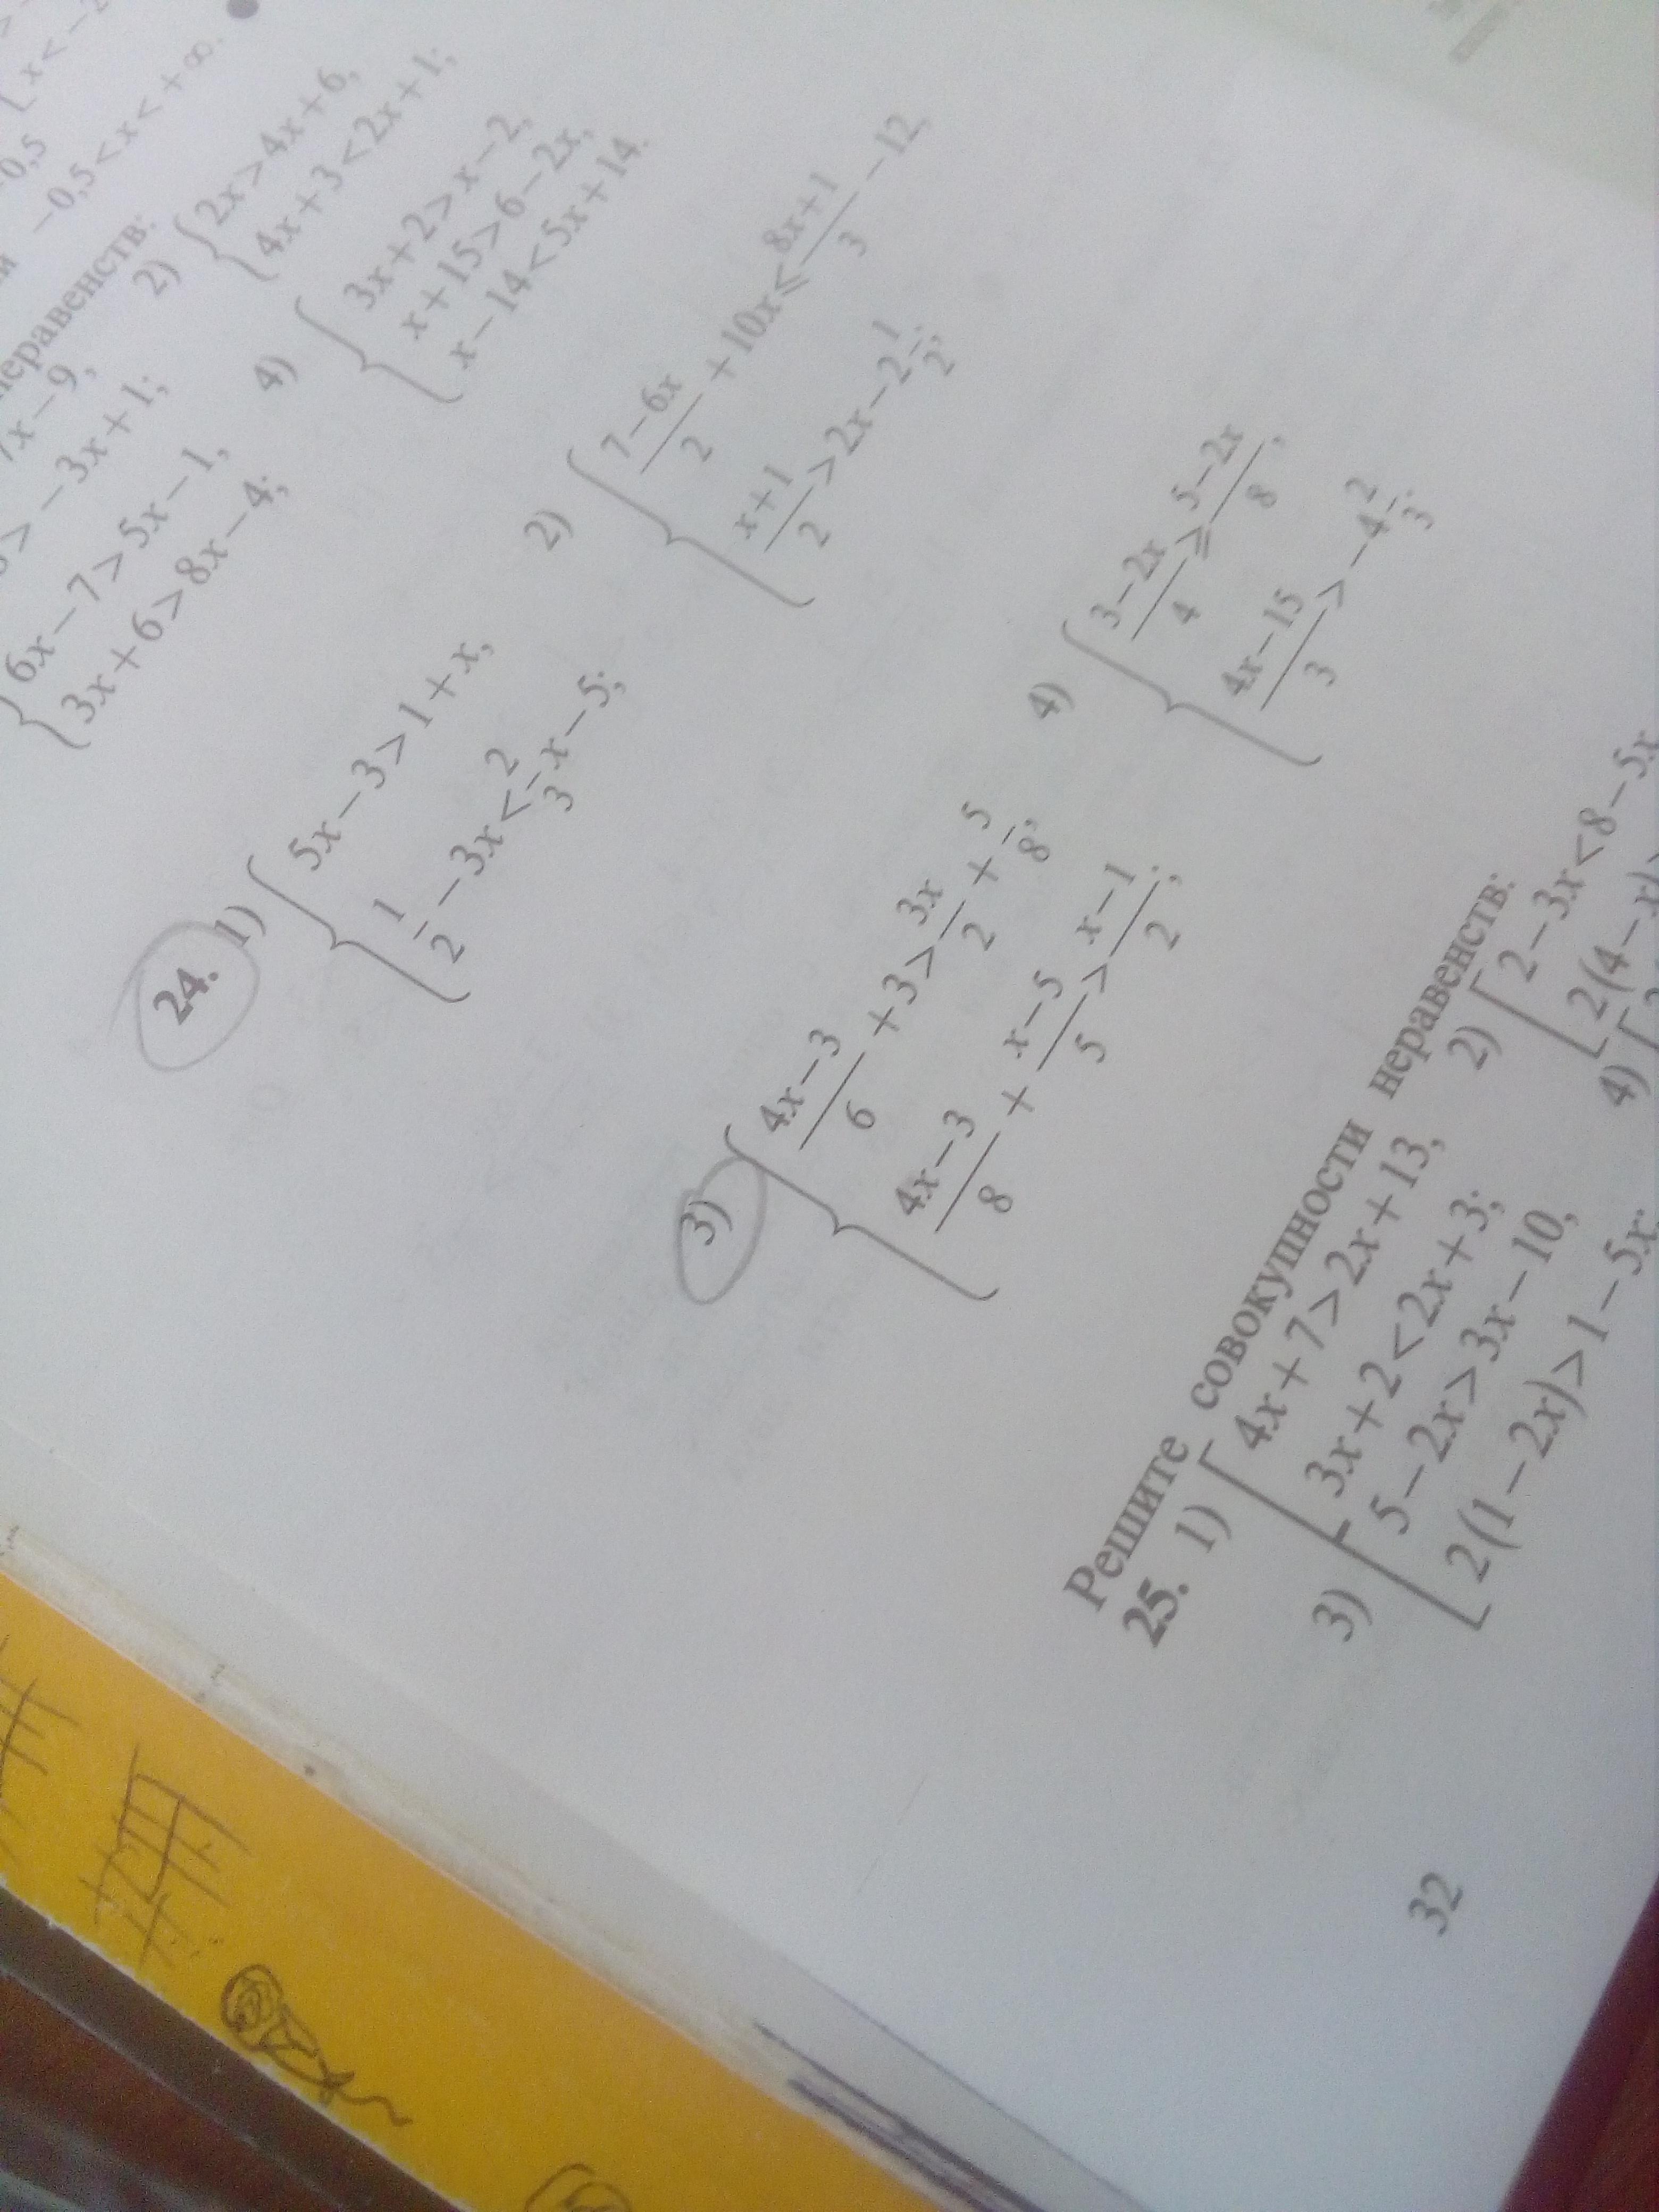 x<-2
0,5
-0,5<x<+∞.
неравенств:
7x-9,
2) { 2x>4x+6,
4x+3<2x+1;
> -3x+1;
4) { 3x+2>x-2,
x+15>6-2x,
x-14<5x+14.
{ 6x-7>5x-1,
3x+6>8x-4;
24. 1) { 5x-3>1+x,
1/2-3x<2/3x-5;
2) { (7-6x)/2+10x≤(8x+1)/3-12,
(x+1)/2>2x-2 1/2;
3) { (4x-3)/6+3>3x/2+5/8,
(4x-3)/8+(x-5)/5>(x-1)/2;
4) { (3-2x)/4≥(5-2x)/8,
(4x-15)/3>-4 2/3.
Решите совокупности неравенств:
25. 1) [ 4x+7>2x+13,
3x+2<2x+3;
2) [ 2-3x<8-5x
2(4-x)>
3) [ 5-2x>3x-10,
2(1-2x)>1-5x;
4) [
32